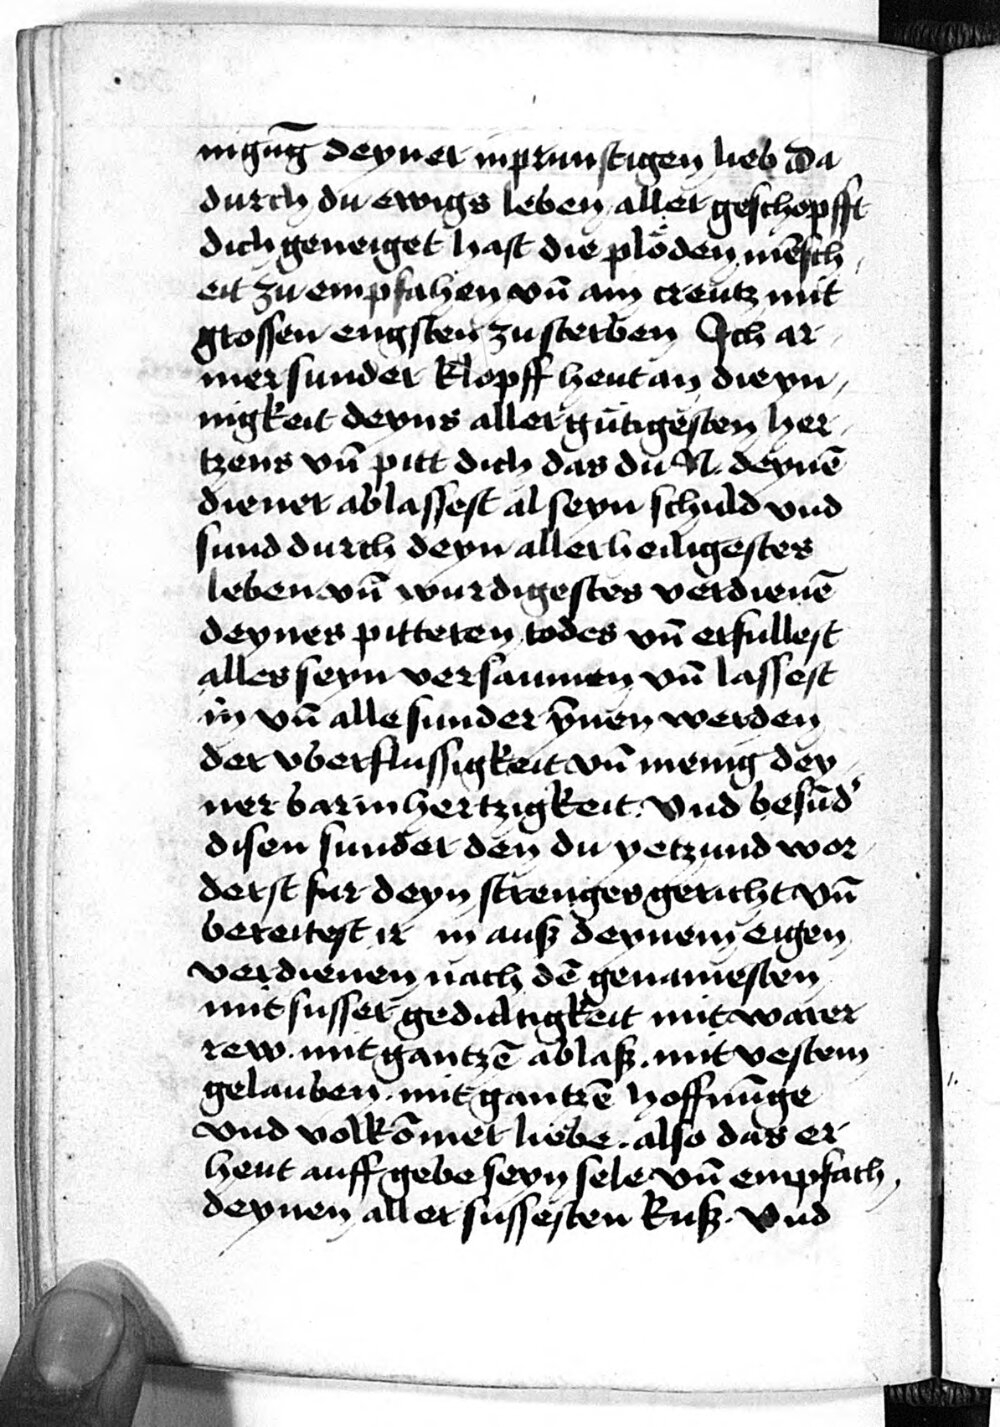 nigūg deyner inprunstigen lieb da
durch du ewigs leben aller geschopfft
dich geneiget hast die plöden mēsch
eit zu empfahen vn̄ am creutz mit
grossen engsten zu sterben Ich ar
mer sunder klopff heut an die yn
nigkeit deyns allergütigesten her
tzens vn̄ pitt dich das du N. deynē
diener ablassest al seyn schuld vnd
sund durch deyn allerheiligestes
leben vn̄ wurdigestes verdienē
deynes pitteren todes vn̄ erfullest
alles seyn versaumen vn̄ lassest
in vn̄ alle sunder ynnen werden
der vberflussigkeit vn̄ menig dey
ner barmhertzigkeit. Vnd besūd'
disen sunder den du yetzund vor
derst fur deyn strenges gericht vn̄
bereitest ir in auß deynem eigen
verdienen nach dē genamesten
mit susser gedultigkeit mit warer
rew. mit gantzē ablaß. mit vestem
gelauben. mit gantzē hoffnūge
vnd volkōmer liebe. also das er
heut auff gebe seyn sele vn̄ empfach
deynen aller sussesten kuß. Vnd